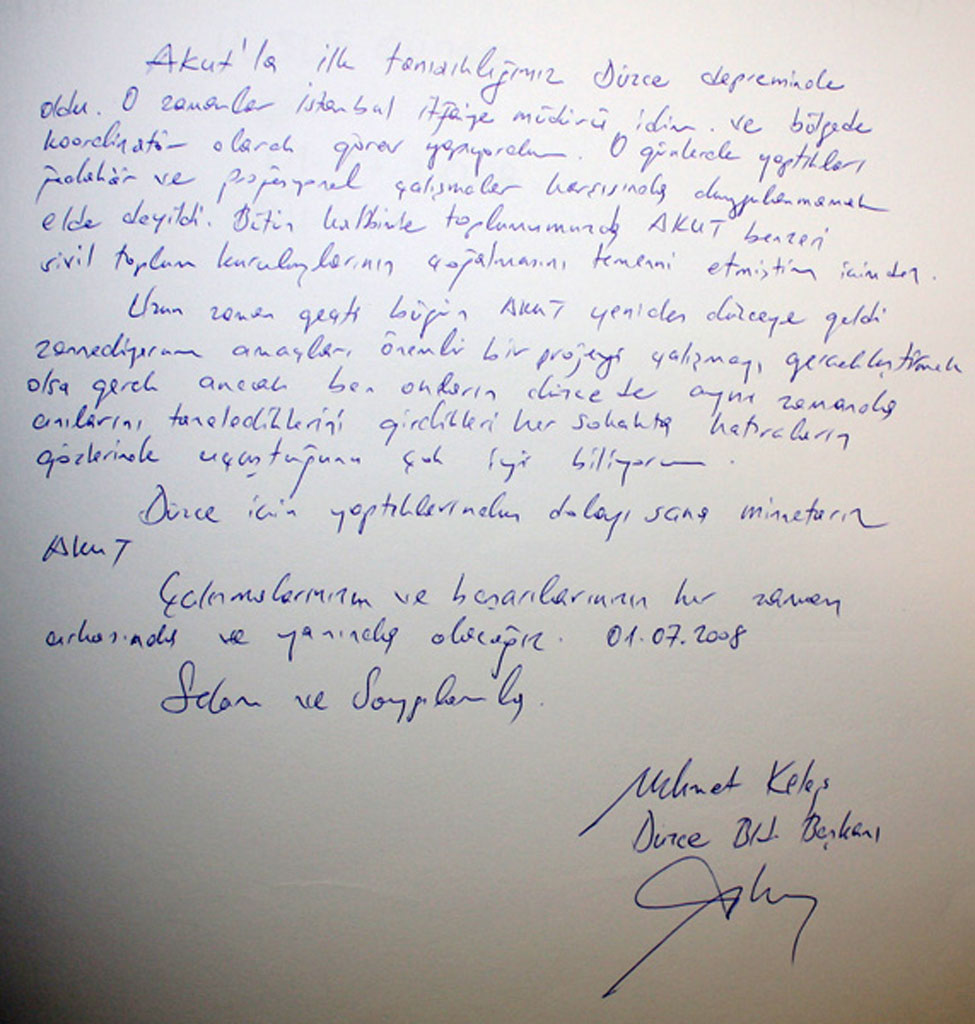 Akut'la ilk tanışıklığımız Düzce depreminde
oldu. O zamanlar İstanbul itfaiye müdürü idim. ve bölgede
koordinatör olarak görev yapıyordum. O günlerde yaptıkları
fedakâr ve profesyonel çalışmalar karşısında duygulanmamak
elde deyildi. Bütün kalbimle toplumumuzda AKUT benzeri
sivil toplum kuruluşlarının çoğalmasını temenni etmiştim içimden.
Uzun zaman geçti bugün AKUT yeniden düzceye geldi
zannediyorum amaçları önemli bir projeyi çalışmayı gerçekleştirmek
olsa gerek ancak ben onların düzcede aynı zamanda
anılarını tazelediklerini girdikleri her sokakta hatıraların
gözlerinde uçuştuğunu çok iyi biliyorum.
Düzce için yaptıklarından dolayı sana minnetarız
AKUT
Çalışmalarınızın ve başarılarınızın her zaman
arkasında ve yanında olacağız. 01.07.2008
Selam ve Saygılarımla.
Mehmet Keleş
Düzce Bld. Başkanı